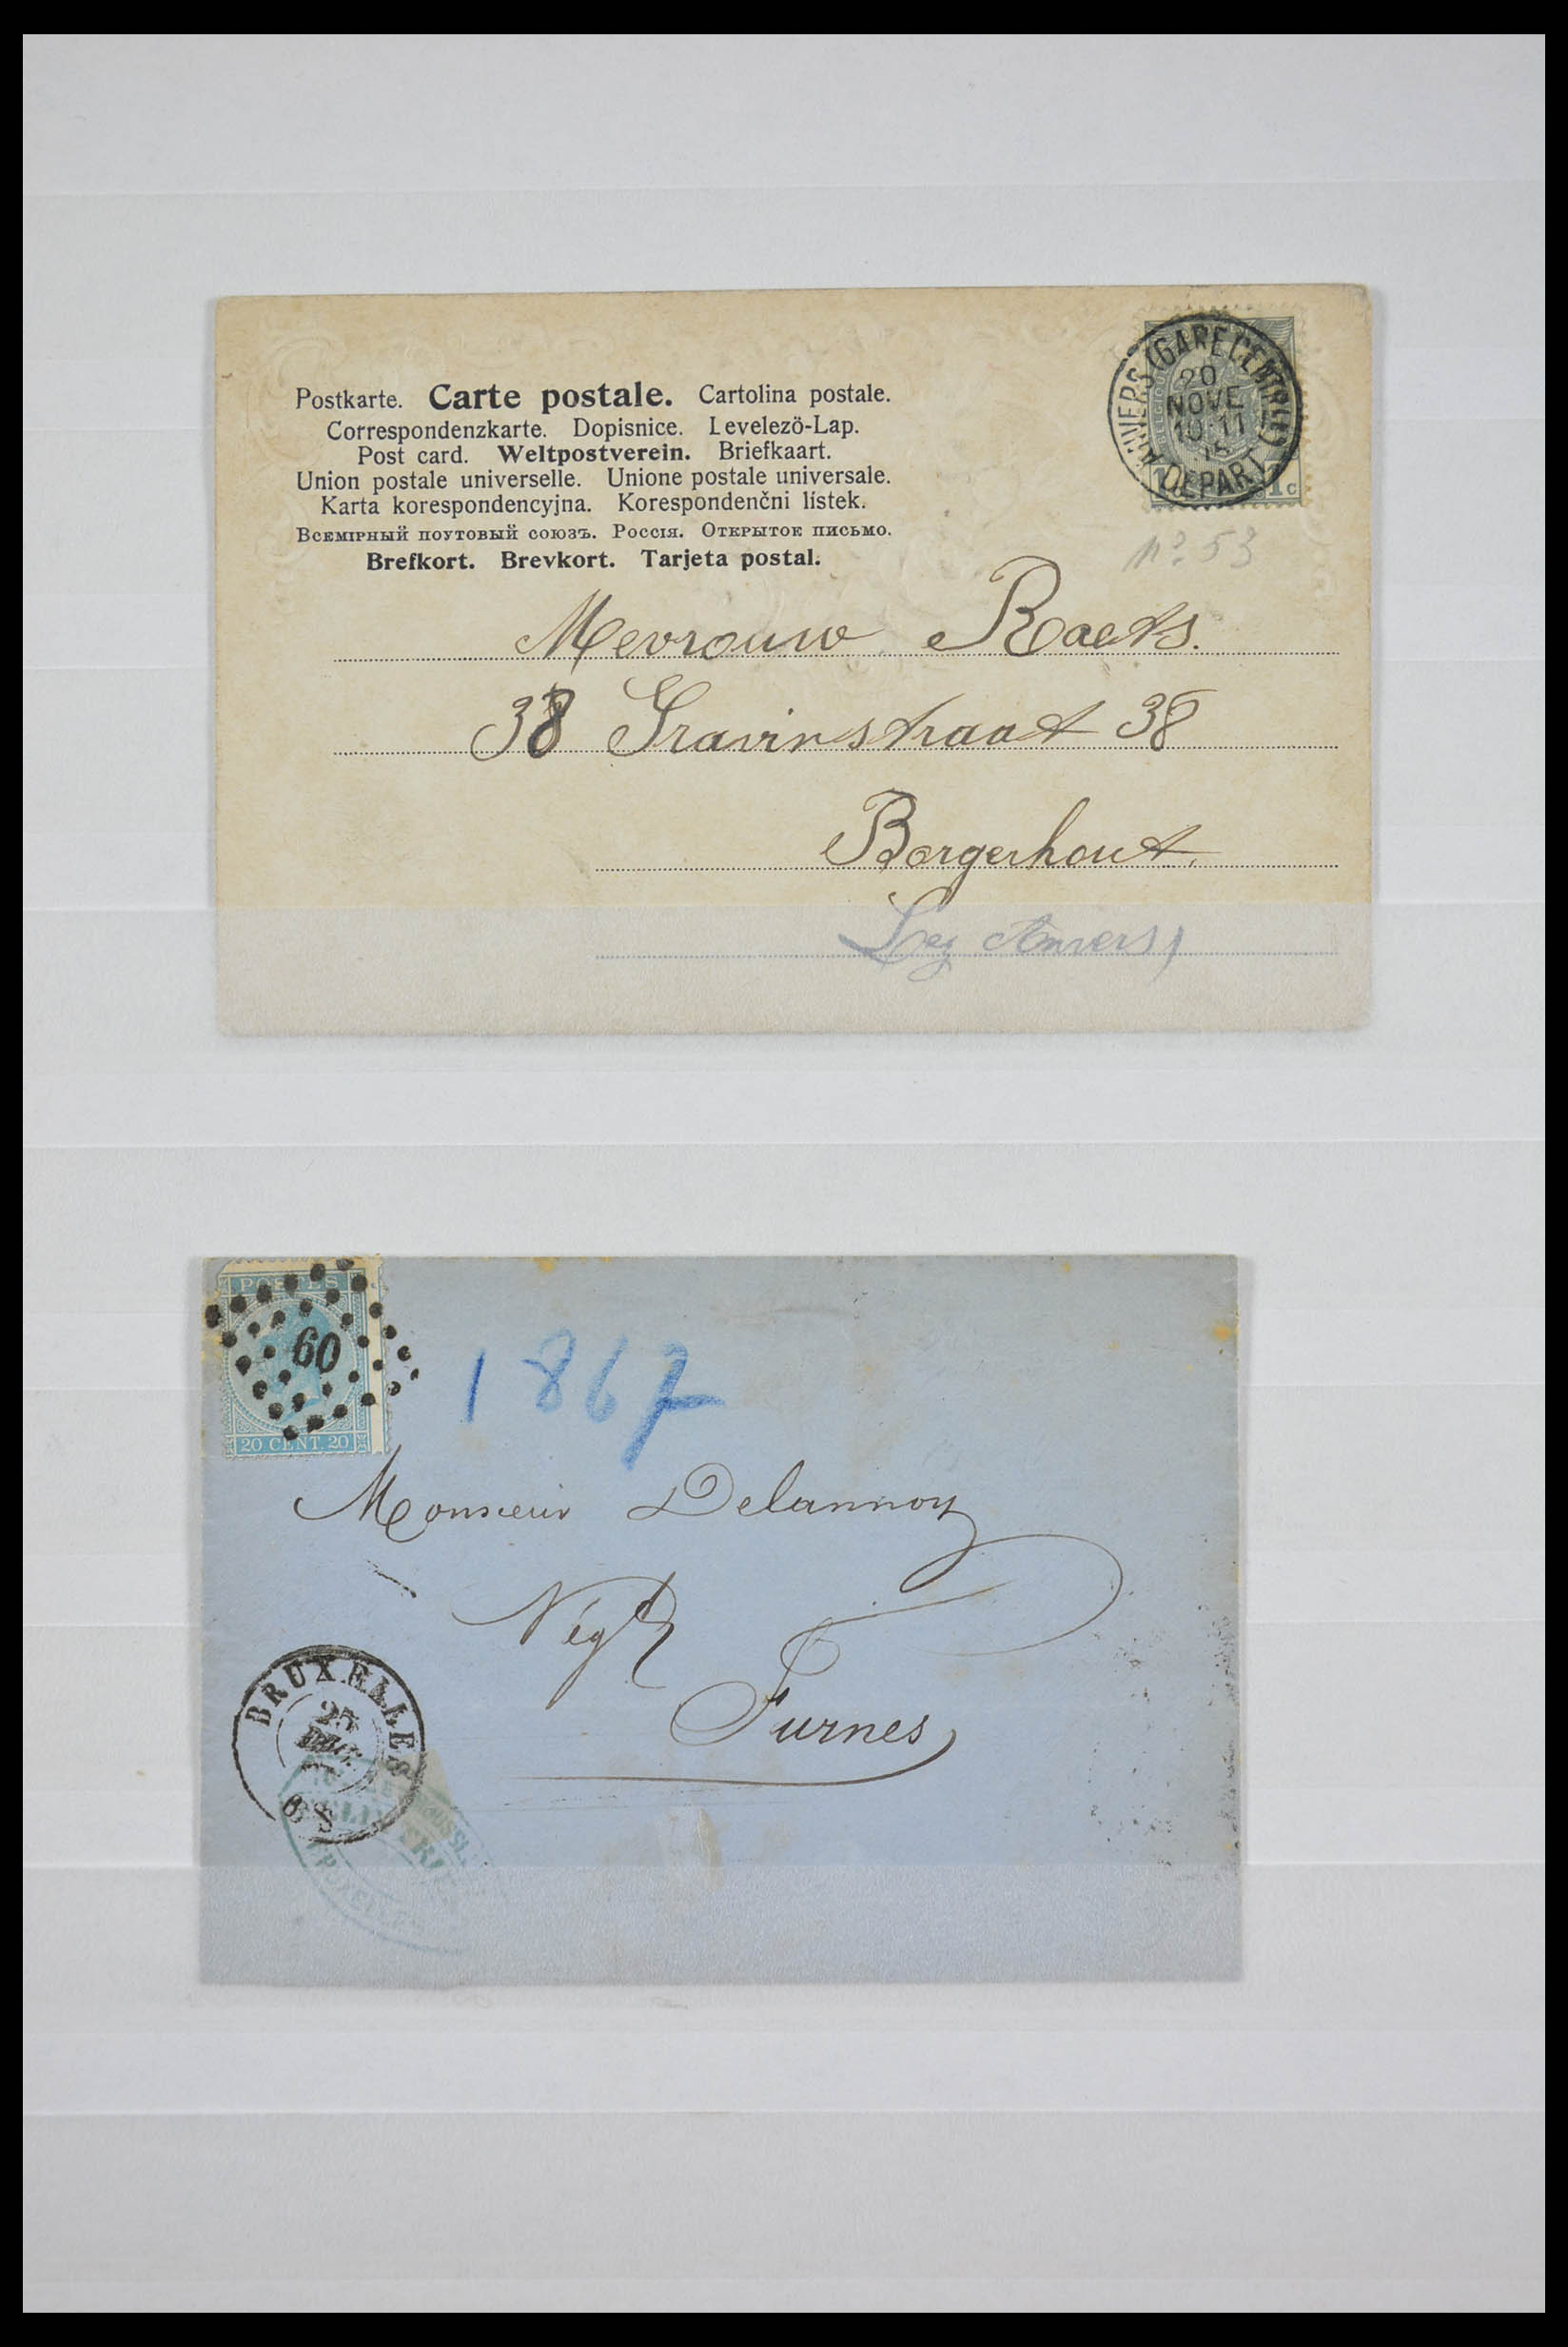 Postkarte. Carte postale. Cartolina postale.
Correspondenzkarte. Dopisnice. Levelezö-Lap.
Post card. Weltpostverein. Briefkaart.
Union postale universelle. Unione postale universale.
Karta korespondencyjna. Korespondenčni lístek.
Всемірный поутовый союзъ. Россія. Открытое письмо.
Brefkort. Brevkort. Tarjeta postal.
ANVERS (GARE CENTRLE)
20
NOVE
10-11
DEPART
1c
no. 53
Mevrouw Raets.
38 Gravinstraat 38
Borgerhout.
Lez Anvers)
POSTES
60
20 CENT. 20
1867
Monsieur Delannoy
Négt
Furnes
BRUXELLES
DEC
8 S
BRUXELLES